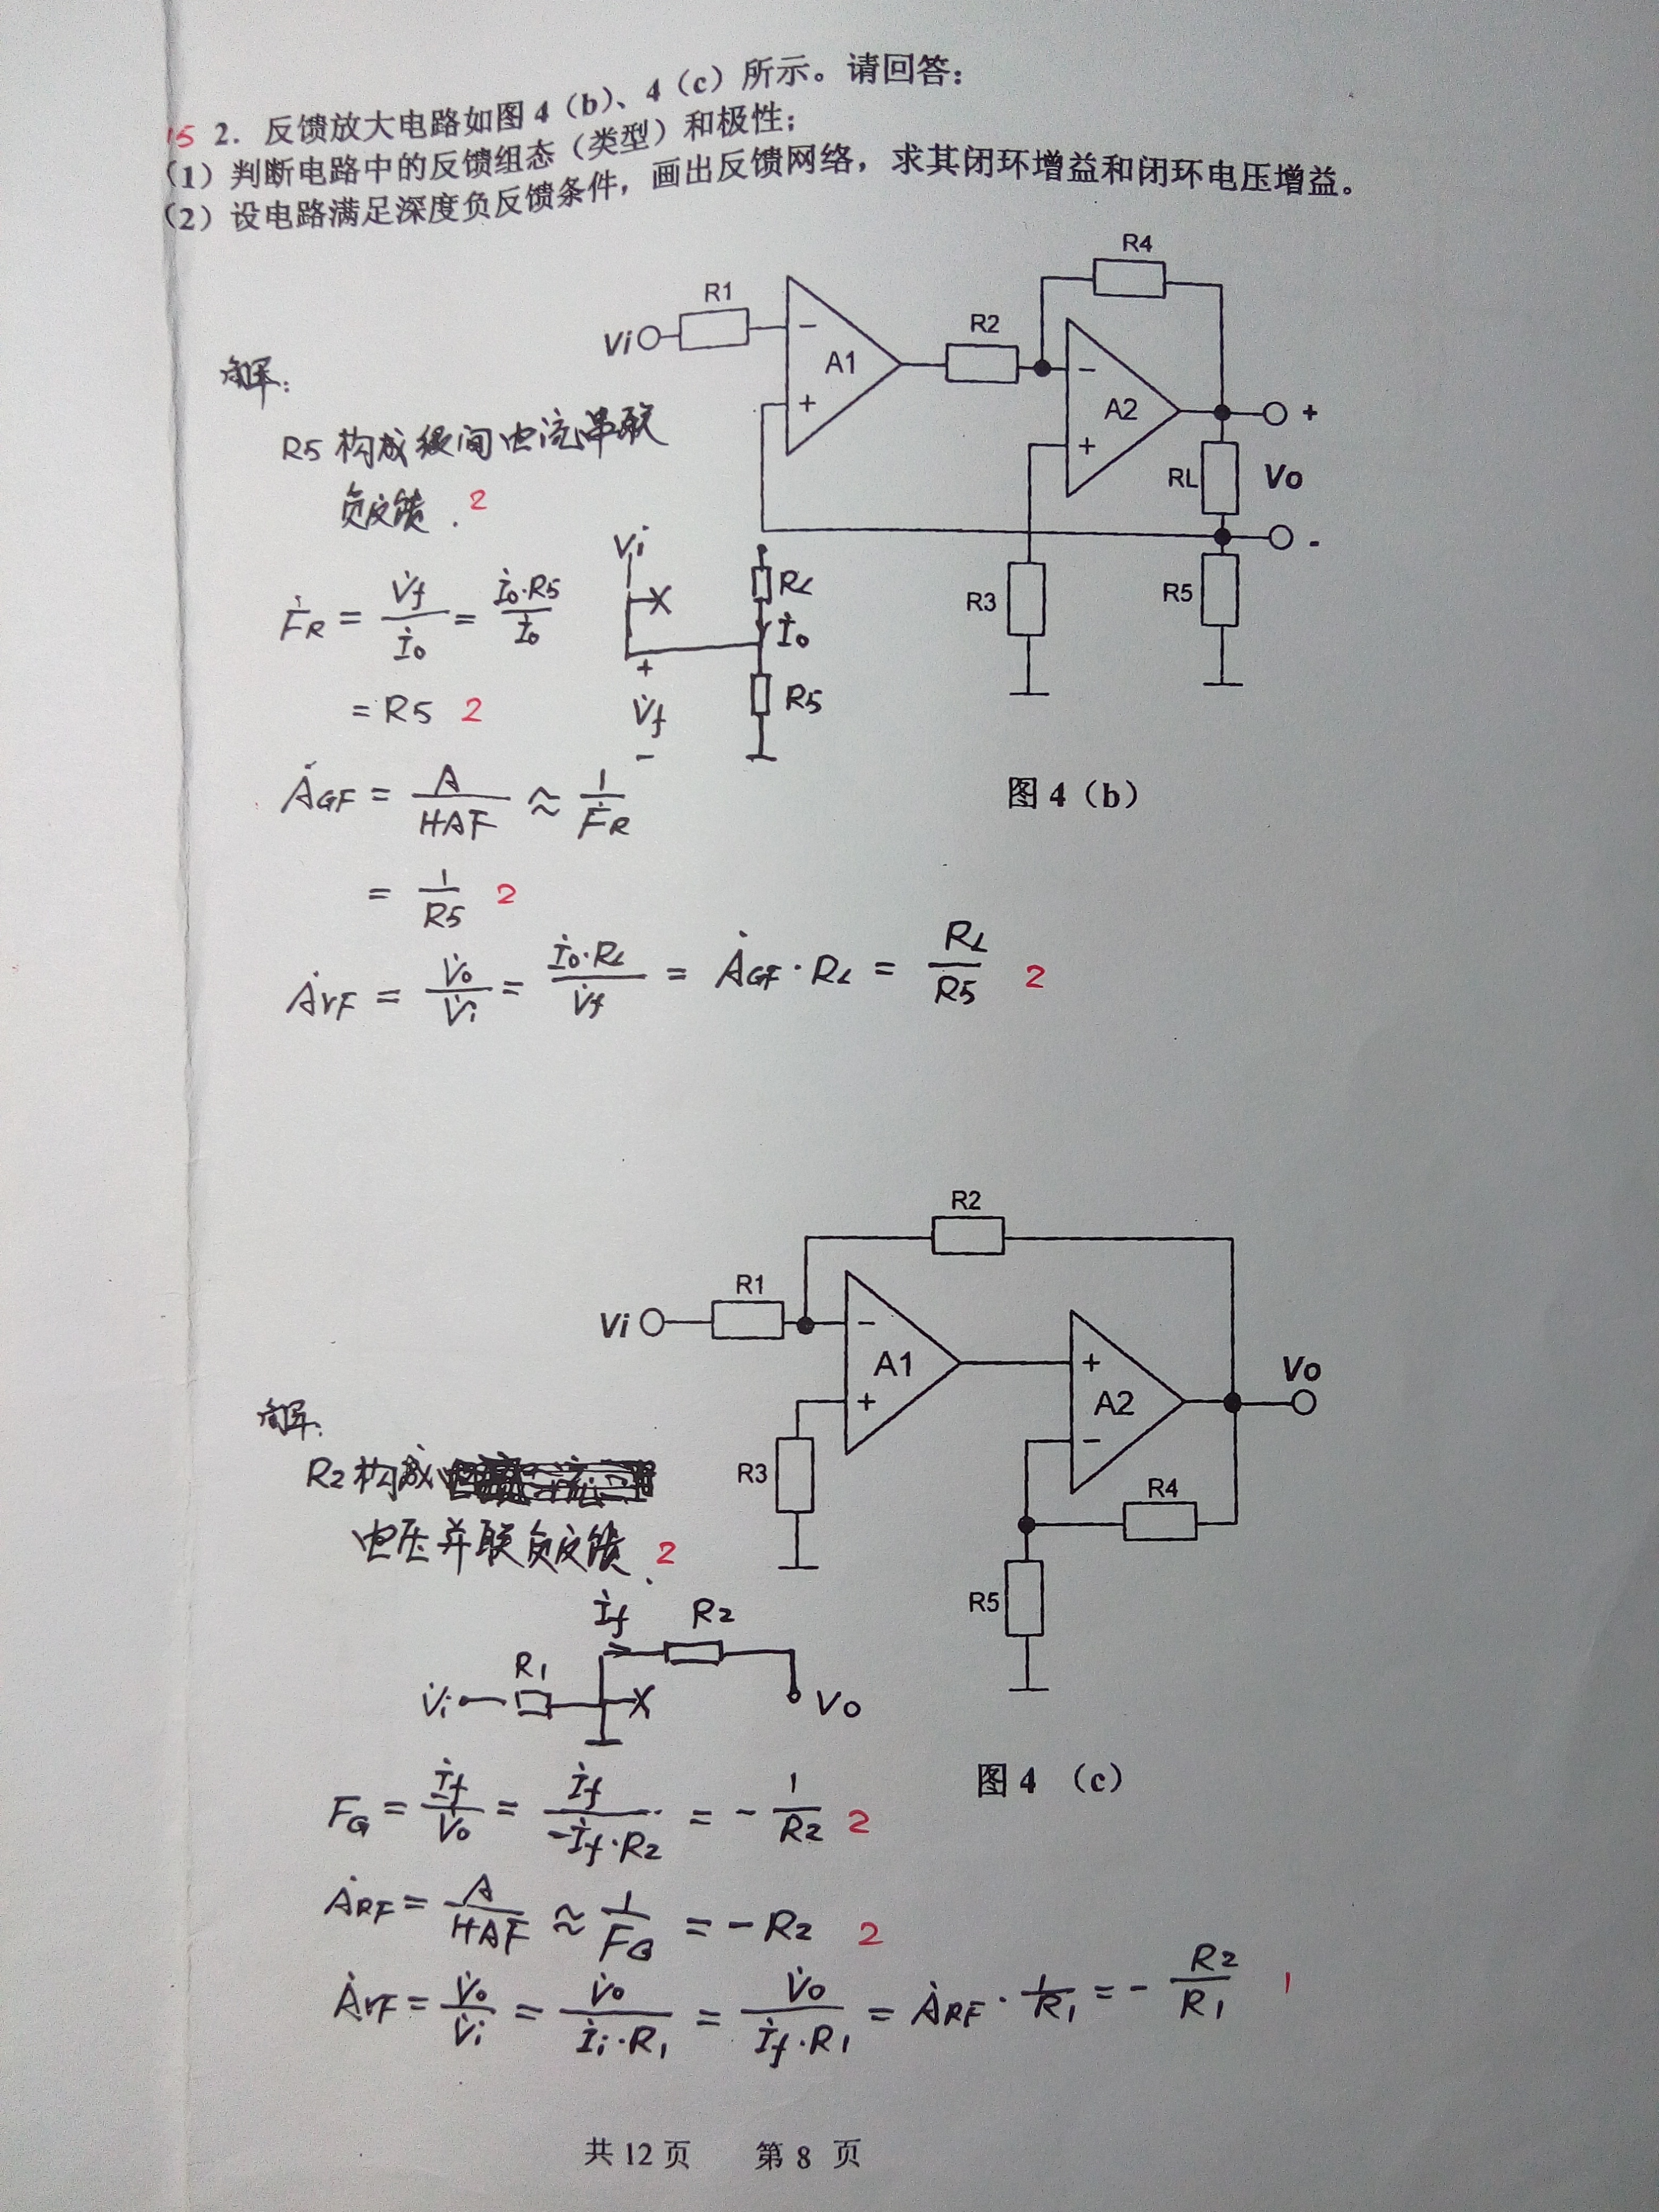 15 2. 反馈放大电路如图 4（b）、4（c）所示。请回答：
（1）判断电路中的反馈组态（类型）和极性；
（2）设电路满足深度负反馈条件，画出反馈网络，求其闭环增益和闭环电压增益。
R4
R1
Vi
R2
A1
A2
−
+
−
+
+
RL
Vo
-
R3
R5
图 4（b）
解：
R5 构成级间电流串联
负反馈. 2
V̇i
X
RL
İo
+
V̇f
-
R5
ḞR = V̇f / İo = İo·R5 / İo
= R5 2
ȦGF = A / 1+AF ≈ 1 / ḞR
= 1 / R5 2
ȦVF = V̇o / V̇i = İo·RL / V̇f = ȦGF · RL = RL / R5 2
R2
R1
Vi
−
A1
+
+
A2
−
Vo
R3
R4
R5
图 4 （c）
解：
R2 构成
电压并联负反馈. 2
İf
R2
R1
V̇i
X
Vo
FG = İf / V̇o = İf / -İf·R2 = - 1 / R2 2
ȦRF = A / 1+AF ≈ 1 / FG = - R2 2
ȦVF = V̇o / V̇i = V̇o / İi·R1 = V̇o / İf·R1 = ȦRF · 1 / R1 = - R2 / R1 1
共 12 页 第 8 页